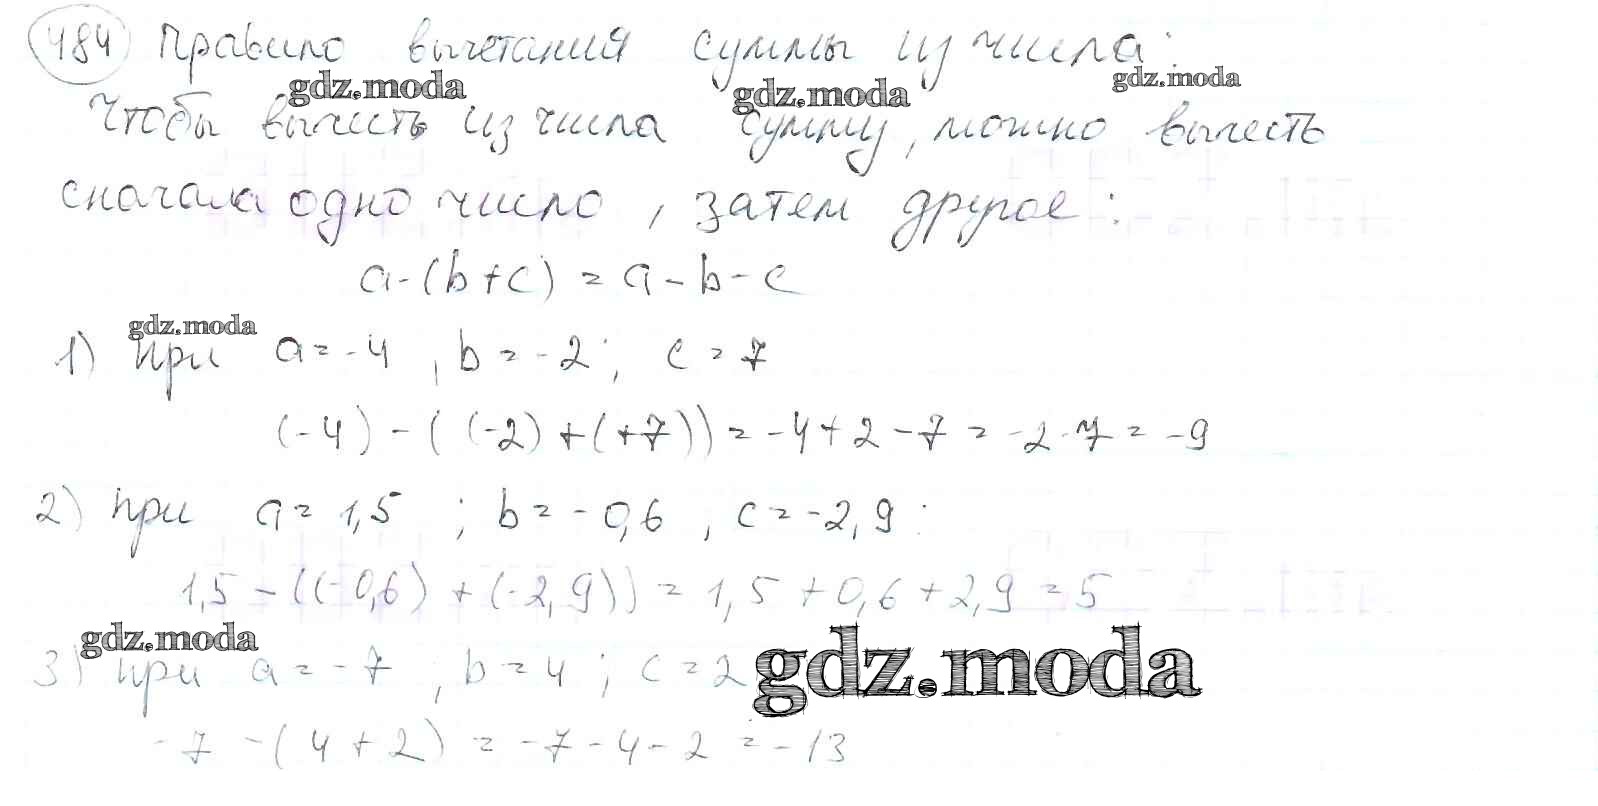 484 Правило вычетания суммы из числа:
gdz.moda gdz.moda gdz.moda
Чтобы вычесть из числа сумму, можно вычесть
сначала одно число, затем другое:
a-(b+c) = a-b-c
gdz.moda
1) при a=-4, b=-2; c=7
(-4)-((-2)+(+7)) = -4+2-7 = -2-7 = -9
2) при a=1,5; b=-0,6, c=-2,9:
1,5-((-0,6)+(-2,9)) = 1,5+0,6+2,9 = 5
gdz.moda
3) при a=-7, b=4; c=2 gdz.moda
-7-(4+2) = -7-4-2 = -13